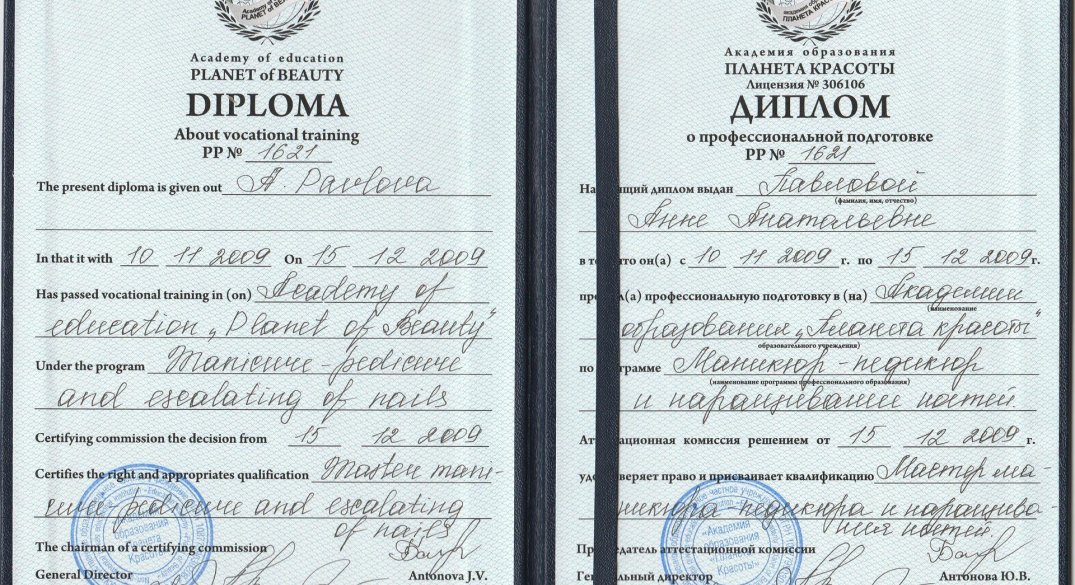 Academy of education
PLANET of BEAUTY
DIPLOMA
About vocational training
PP № 1621
The present diploma is given out A. Pavlova
In that it with 10 11 2009 On 15 12 2009
Has passed vocational training in (on) Academy of
education „Planet of Beauty"
Under the program Manicure-pedicure
and escalating of nails
Certifying commission the decision from 15 12 2009
Certifies the right and appropriates qualification Master mani-
cure-pedicure and escalating
of nails
The chairman of a certifying commission
General Director Antonova J.V.
Академия образования
ПЛАНЕТА КРАСОТЫ
Лицензия № 306106
ДИПЛОМ
о профессиональной подготовке
PP № 1621
На щий диплом выдан Павловой
(фамилия, имя, отчество)
Анне Анатольевне
в т то он(а) с 10 11 2009 г. по 15 12 2009г.
пр л(а) профессиональную подготовку в (на) Академии
(наименование
образования „Планета красоты"
образовательного учреждения)
по грамме Маникюр-педикюр
(наименование программы профессионального образования)
и наращивании ногтей.
Ат ационная комиссия решением от 15 12 2009 г.
уд веряет право и присваивает квалификацию Мастер ма-
никюра педикюра и наращива-
ния ногтей.
Пр датель аттестационной комиссии
Ге льный директор Антонова Ю.В.
«Академия
образования
«Планета
Красоты»